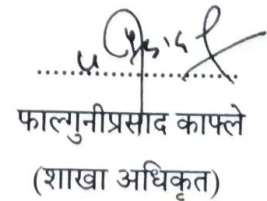 फाल्गुनीप्रसाद काफ्ले
(शाखा अधिकृत)